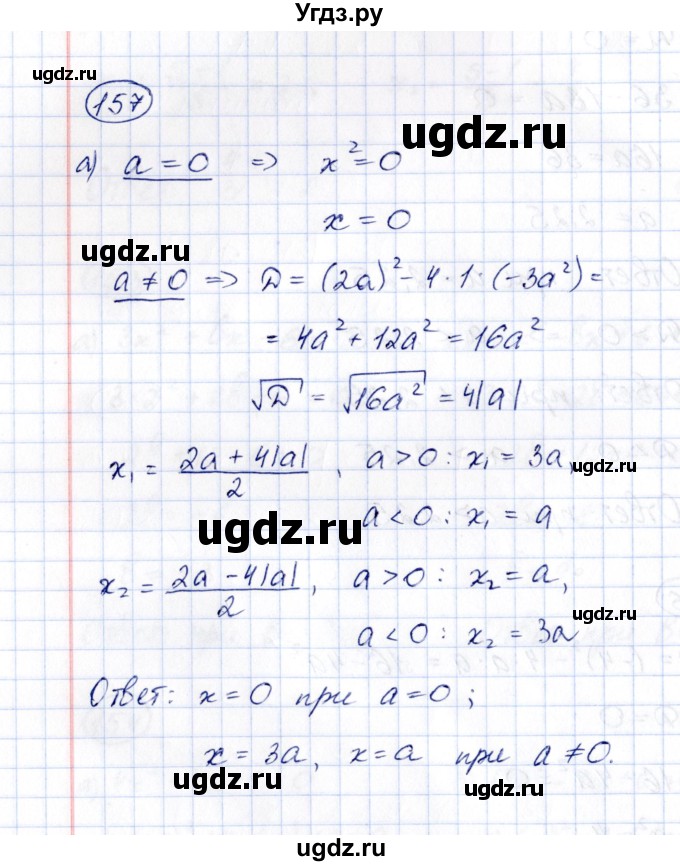 Угдз.ру
ugdz.ru
157
ugdz.ru
а) a = 0 => x² = 0
x = 0
ugdz.ru
a ≠ 0 => D = (2a)² - 4 · 1 · (-3a²) =
= 4a² + 12a² = 16a²
√D = √16a² = 4|a|
x₁ = (2a + 4|a|)/2 , a > 0 : x₁ = 3a,
ugdz.ru
a < 0 : x₁ = a
ugdz.ru
x₂ = (2a - 4|a|)/2 , a > 0 : x₂ = a,
ugdz.ru
a < 0 : x₂ = 3a
Ответ: x = 0 при a = 0 ;
x = 3a, x = a при a ≠ 0.
ugdz.ru
ugdz.ru
ugdz.ru